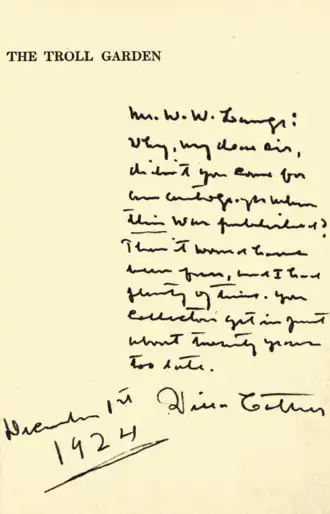 THE TROLL GARDEN
Mr. W. W. Lange:
Why, my dear sir,
didn't you come for
an autograph when
this was published?
Then it would have
been fun, and I had
plenty of time. You
collectors get in just
about twenty years
too late.
Willa Cather
December 1st
1924